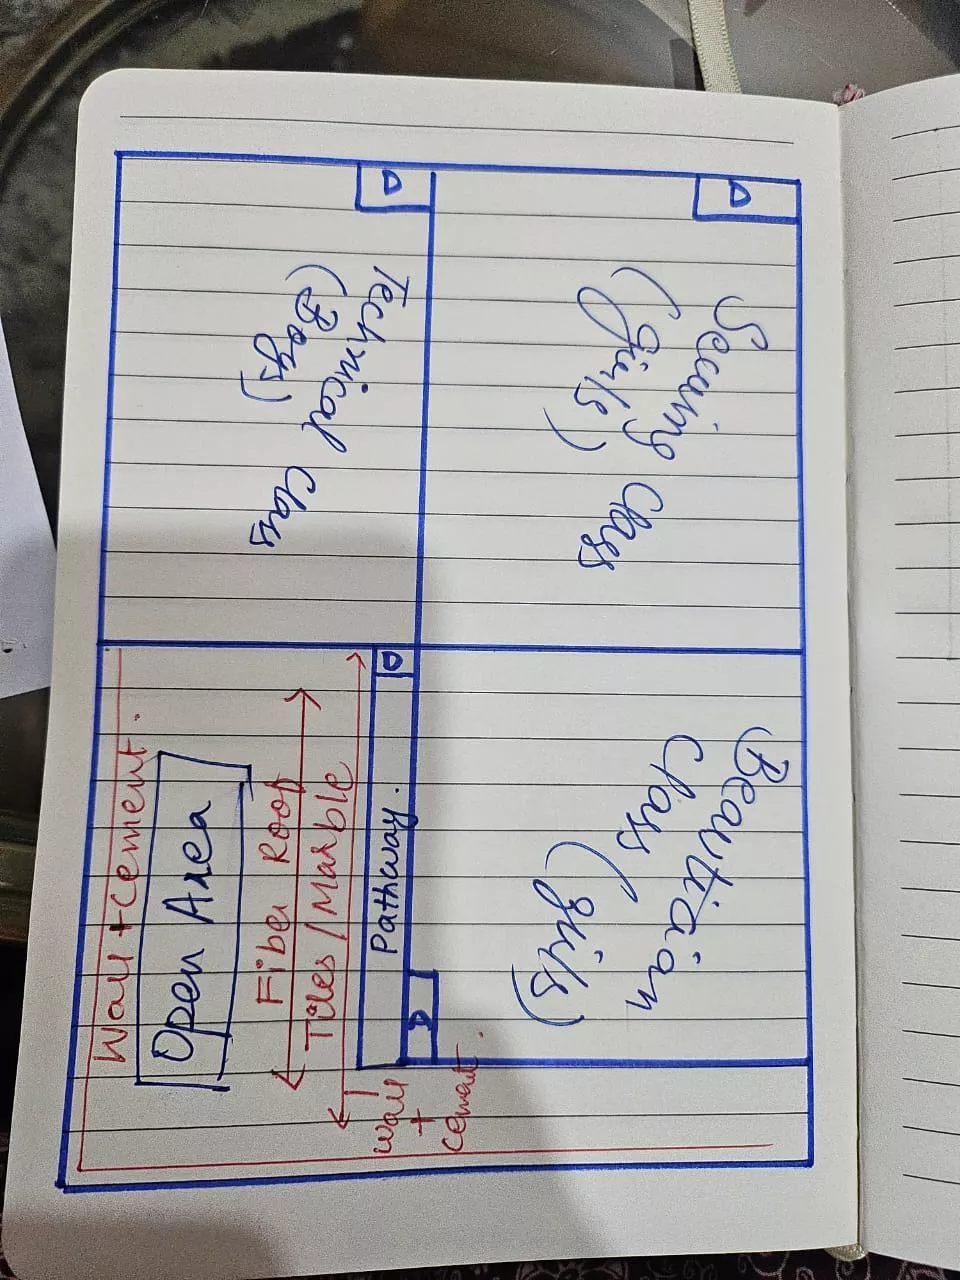 D
Secuing Class
(girls)
D
Technical Class
(Boys)
Beautician
Class
(girls)
D
Pathway.
D
Tiles / Marble
Fiber Roof
Open Area
Wall + cement.
wall
+
cement.